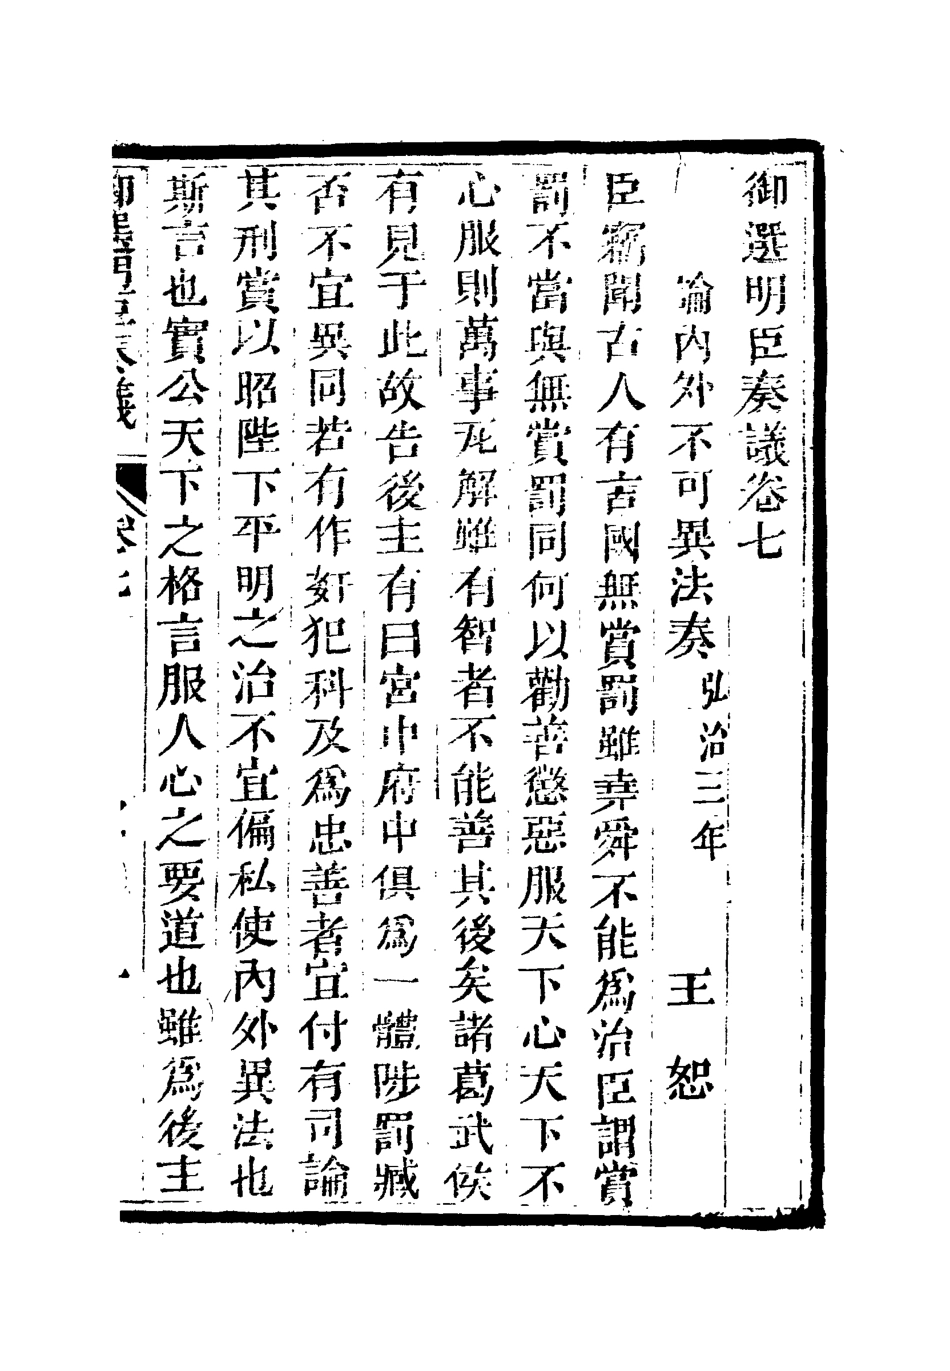 御選明臣奏議卷七
論内外不可異法奏 弘治三年 王恕
臣竊聞古人有言國無賞罰雖堯舜不能爲治臣謂賞
罰不當與無賞罰同何以勸善懲惡服天下心天下不
心服則萬事瓦解雖有智者不能善其後矣諸葛武侯
有見于此故告後主有曰宮中府中俱爲一體陟罰臧
否不宜異同若有作奸犯科及爲忠善者宜付有司論
其刑賞以昭陛下平明之治不宜偏私使內外異法也
斯言也實公天下之格言服人心之要道也雖爲後主
御選明臣奏議 卷七 一